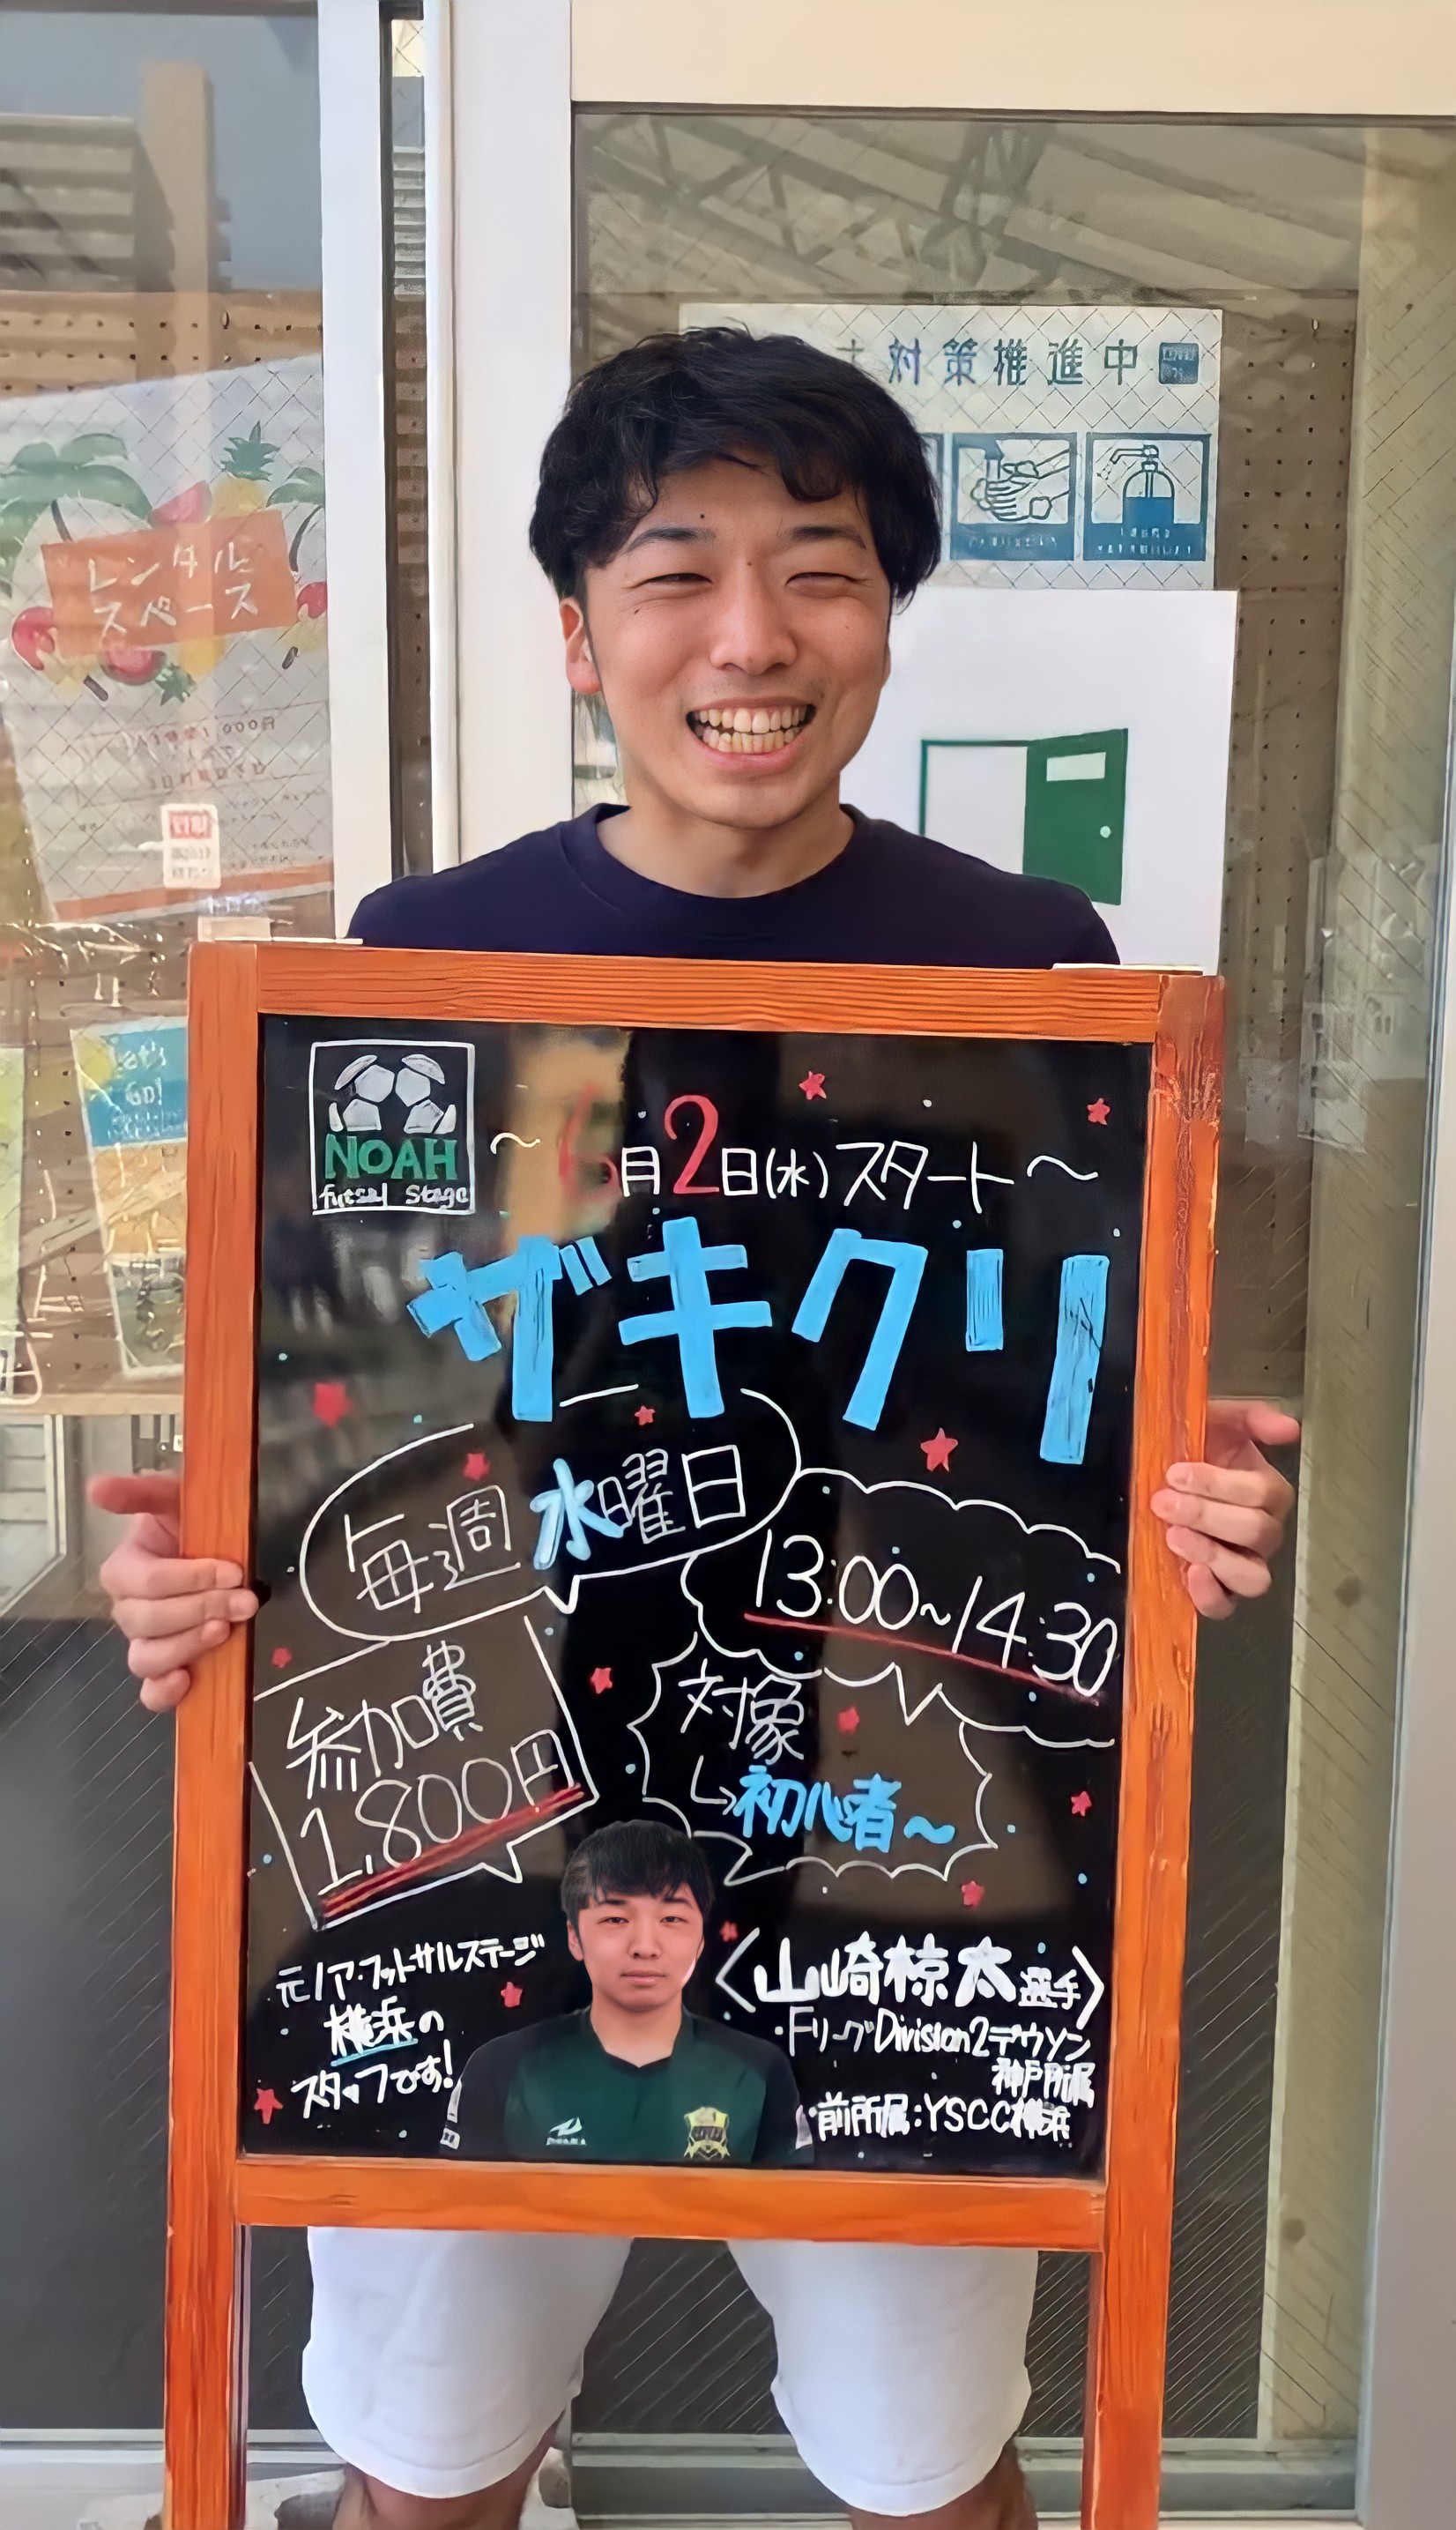 対策推進中
レンタル
スペース
Let's
GO!
NOAH
futsal stage
～6月2日(水)スタート～
ザキクリ
毎週水曜日
13:00~14:30
参加費
1,800円
対象
↳初心者～
元ノア・フットサルステージ
横浜の
スタッフです!
〈山崎椋太選手〉
・FリーグDivision2デウソン
神戸所属
・前所属:YSCC横浜